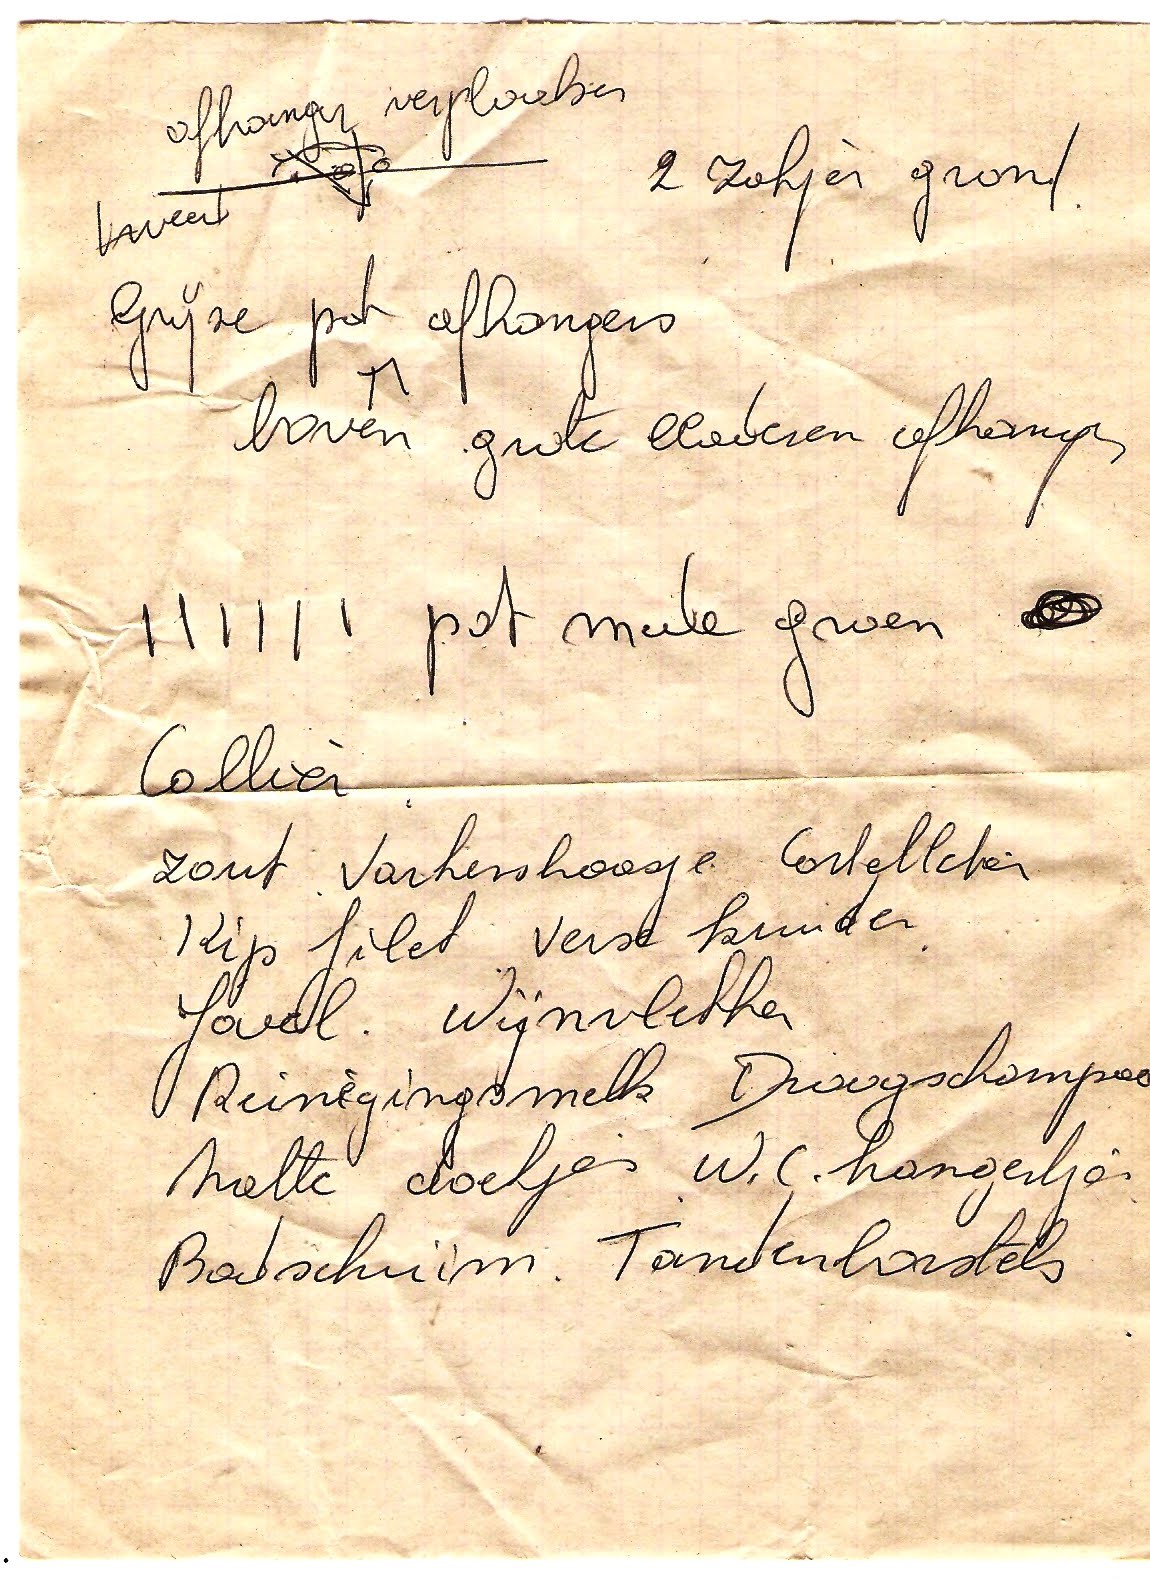 afhangr verplaatsen
2 zakjes grond.
Grijze pot afhangers
boven grote bladeren afhangr
pot mute groen
Collier
zout Varkenshaasje Cortelletten
Kip filet verse kruiden
Javel. Wijnvlekken
Reinigingsmelk Droogschampoo
natte doekjes W.C. hangertjes
Badschuim. Tandenborstels